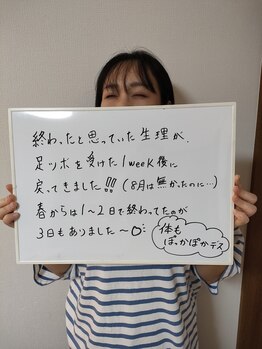 終わったと思っていた生理が、
足ツボを受けた1week後に
戻ってきました!!(8月は無かったのに…)
春からは1〜2日で終わってたのが
3日もありました〜
体も
ぽっかぽかデス